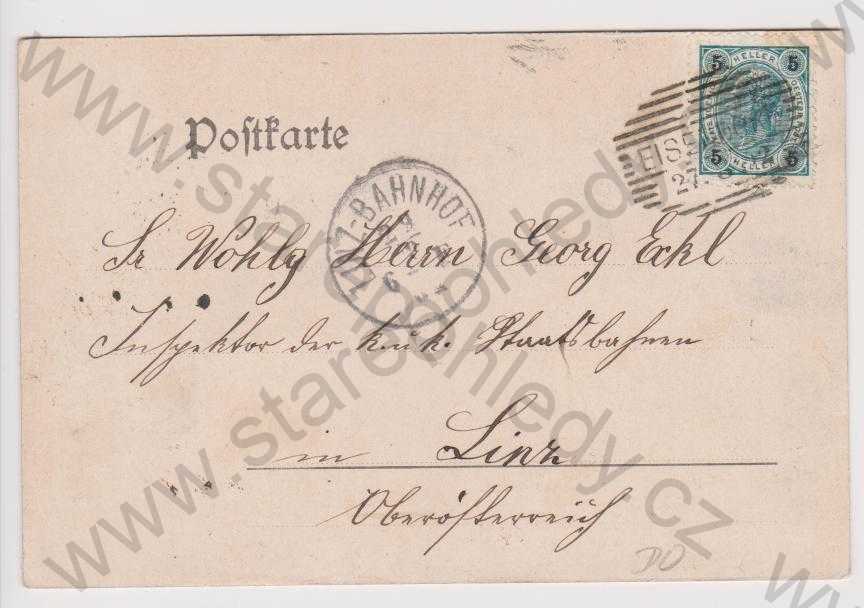 Postkarte
5 HELLER 5
5 HELLER 5
EIS
27.
LINZ-BAHNHOF
Sr Wohlg Herrn Georg Eckl
Inspektor der k. u. k. Staatsbahnen
in Linz
Oberösterreich
DO
www.starepohledy.cz